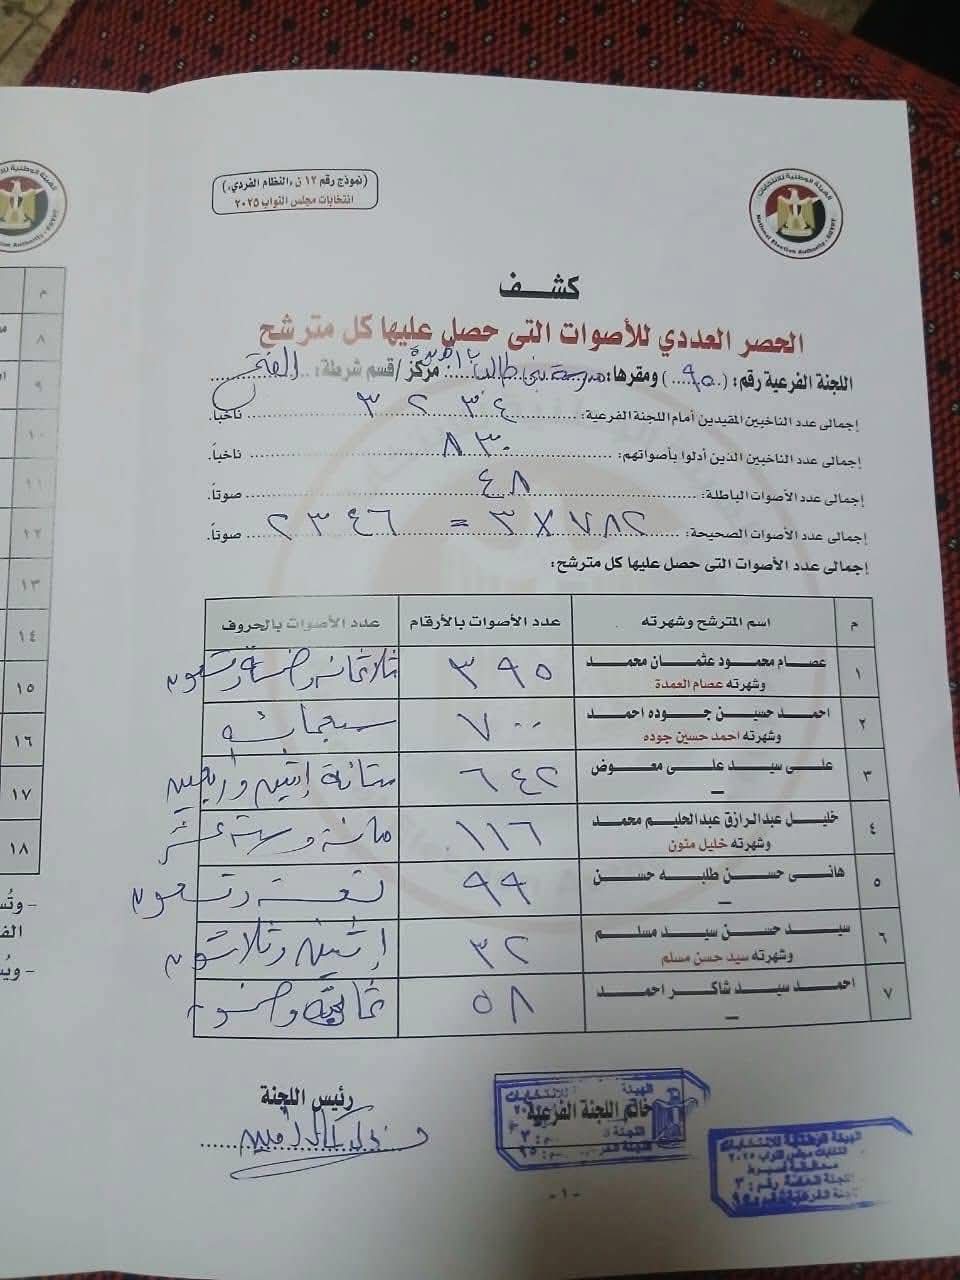 (نموذج رقم ١٢ ن «النظام الفردي»)
انتخابات مجلس النواب ٢٠٢٥
الهيئة الوطنية للانتخابات
National Election Authority - EGYPT
كشف
الحصر العددي للأصوات التى حصل عليها كل مترشح
اللجنة الفرعية رقم: (٩٥) ومقرها: مدرسة بنى طالب مركز/قسم شرطة: الفتح
إجمالى عدد الناخبين المقيدين أمام اللجنة الفرعية: ٣٢٣٤ ناخباً.
إجمالى عدد الناخبين الذين أدلوا بأصواتهم: ٨٣٠ ناخباً.
إجمالى عدد الأصوات الباطلة: ٤٨ صوتاً.
إجمالى عدد الأصوات الصحيحة: ٧٨٢ × ٣ = ٢٣٤٦ صوتاً.
إجمالى عدد الأصوات التى حصل عليها كل مترشح:
م اسم المترشح وشهرته عدد الأصوات بالأرقام عدد الأصوات بالحروف
١ عصام محمود عثمان محمد ٣٩٥ ثلاثمائة وخمسة وتسعون
وشهرته عصام العمدة
٢ احمد حسين جوده احمد ٧٠٠ سبعمائة
وشهرته احمد حسين جوده
٣ على سيد على معوض ٦٤٢ ستمائة إثنين واربعين
–
٤ خليل عبدالرازق عبدالحليم محمد ١١٦ مائة وستة عشر
وشهرته خليل منون
٥ هانى حسن طلبه حسن ٩٩ تسعة وتسعون
–
٦ سيد حسن سيد مسلم ٣٢ إثنين وثلاثون
وشهرته سيد حسن مسلم
٧ احمد سيد شاكر احمد ٥٨ ثمانية وخمسون
–
رئيس اللجنة
خاتم اللجنة الفرعية
الهيئة الوطنية للانتخابات
انتخابات مجلس النواب ٢٠٢٥
محافظة أسيوط
اللجنة العامة رقم: ٣
اللجنة الفرعية رقم: ٩٥
- ١ -
م
٨
٩
١٠
١١
١٢
١٣
١٤
١٥
١٦
١٧
١٨